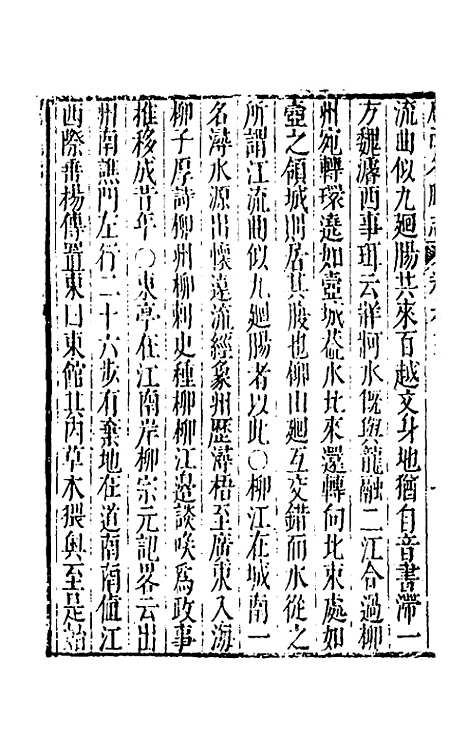 流曲似九廻腸共來百越文身地猶自音書滯一
方魏濬西事珥云牂牁水旣與龍融二江合過柳
州宛轉環遶如壺城葢水北來還轉向北東處如
壺之領城則居其腹也柳山廻互交錯而水從之
所謂江流曲似九廻腸者以此〇柳江在城南一
名潯水源出懷遠流經象州歷潯梧至廣東入海
柳子厚詩柳州柳刺史種柳柳江邉談咲爲政事
推移成昔年〇東亭在江南岸柳宗元記畧云出
州南譙門左行二十六步有棄地在道南南值江
西際垂楊傳置東曰東館其內草木猥奧至是始